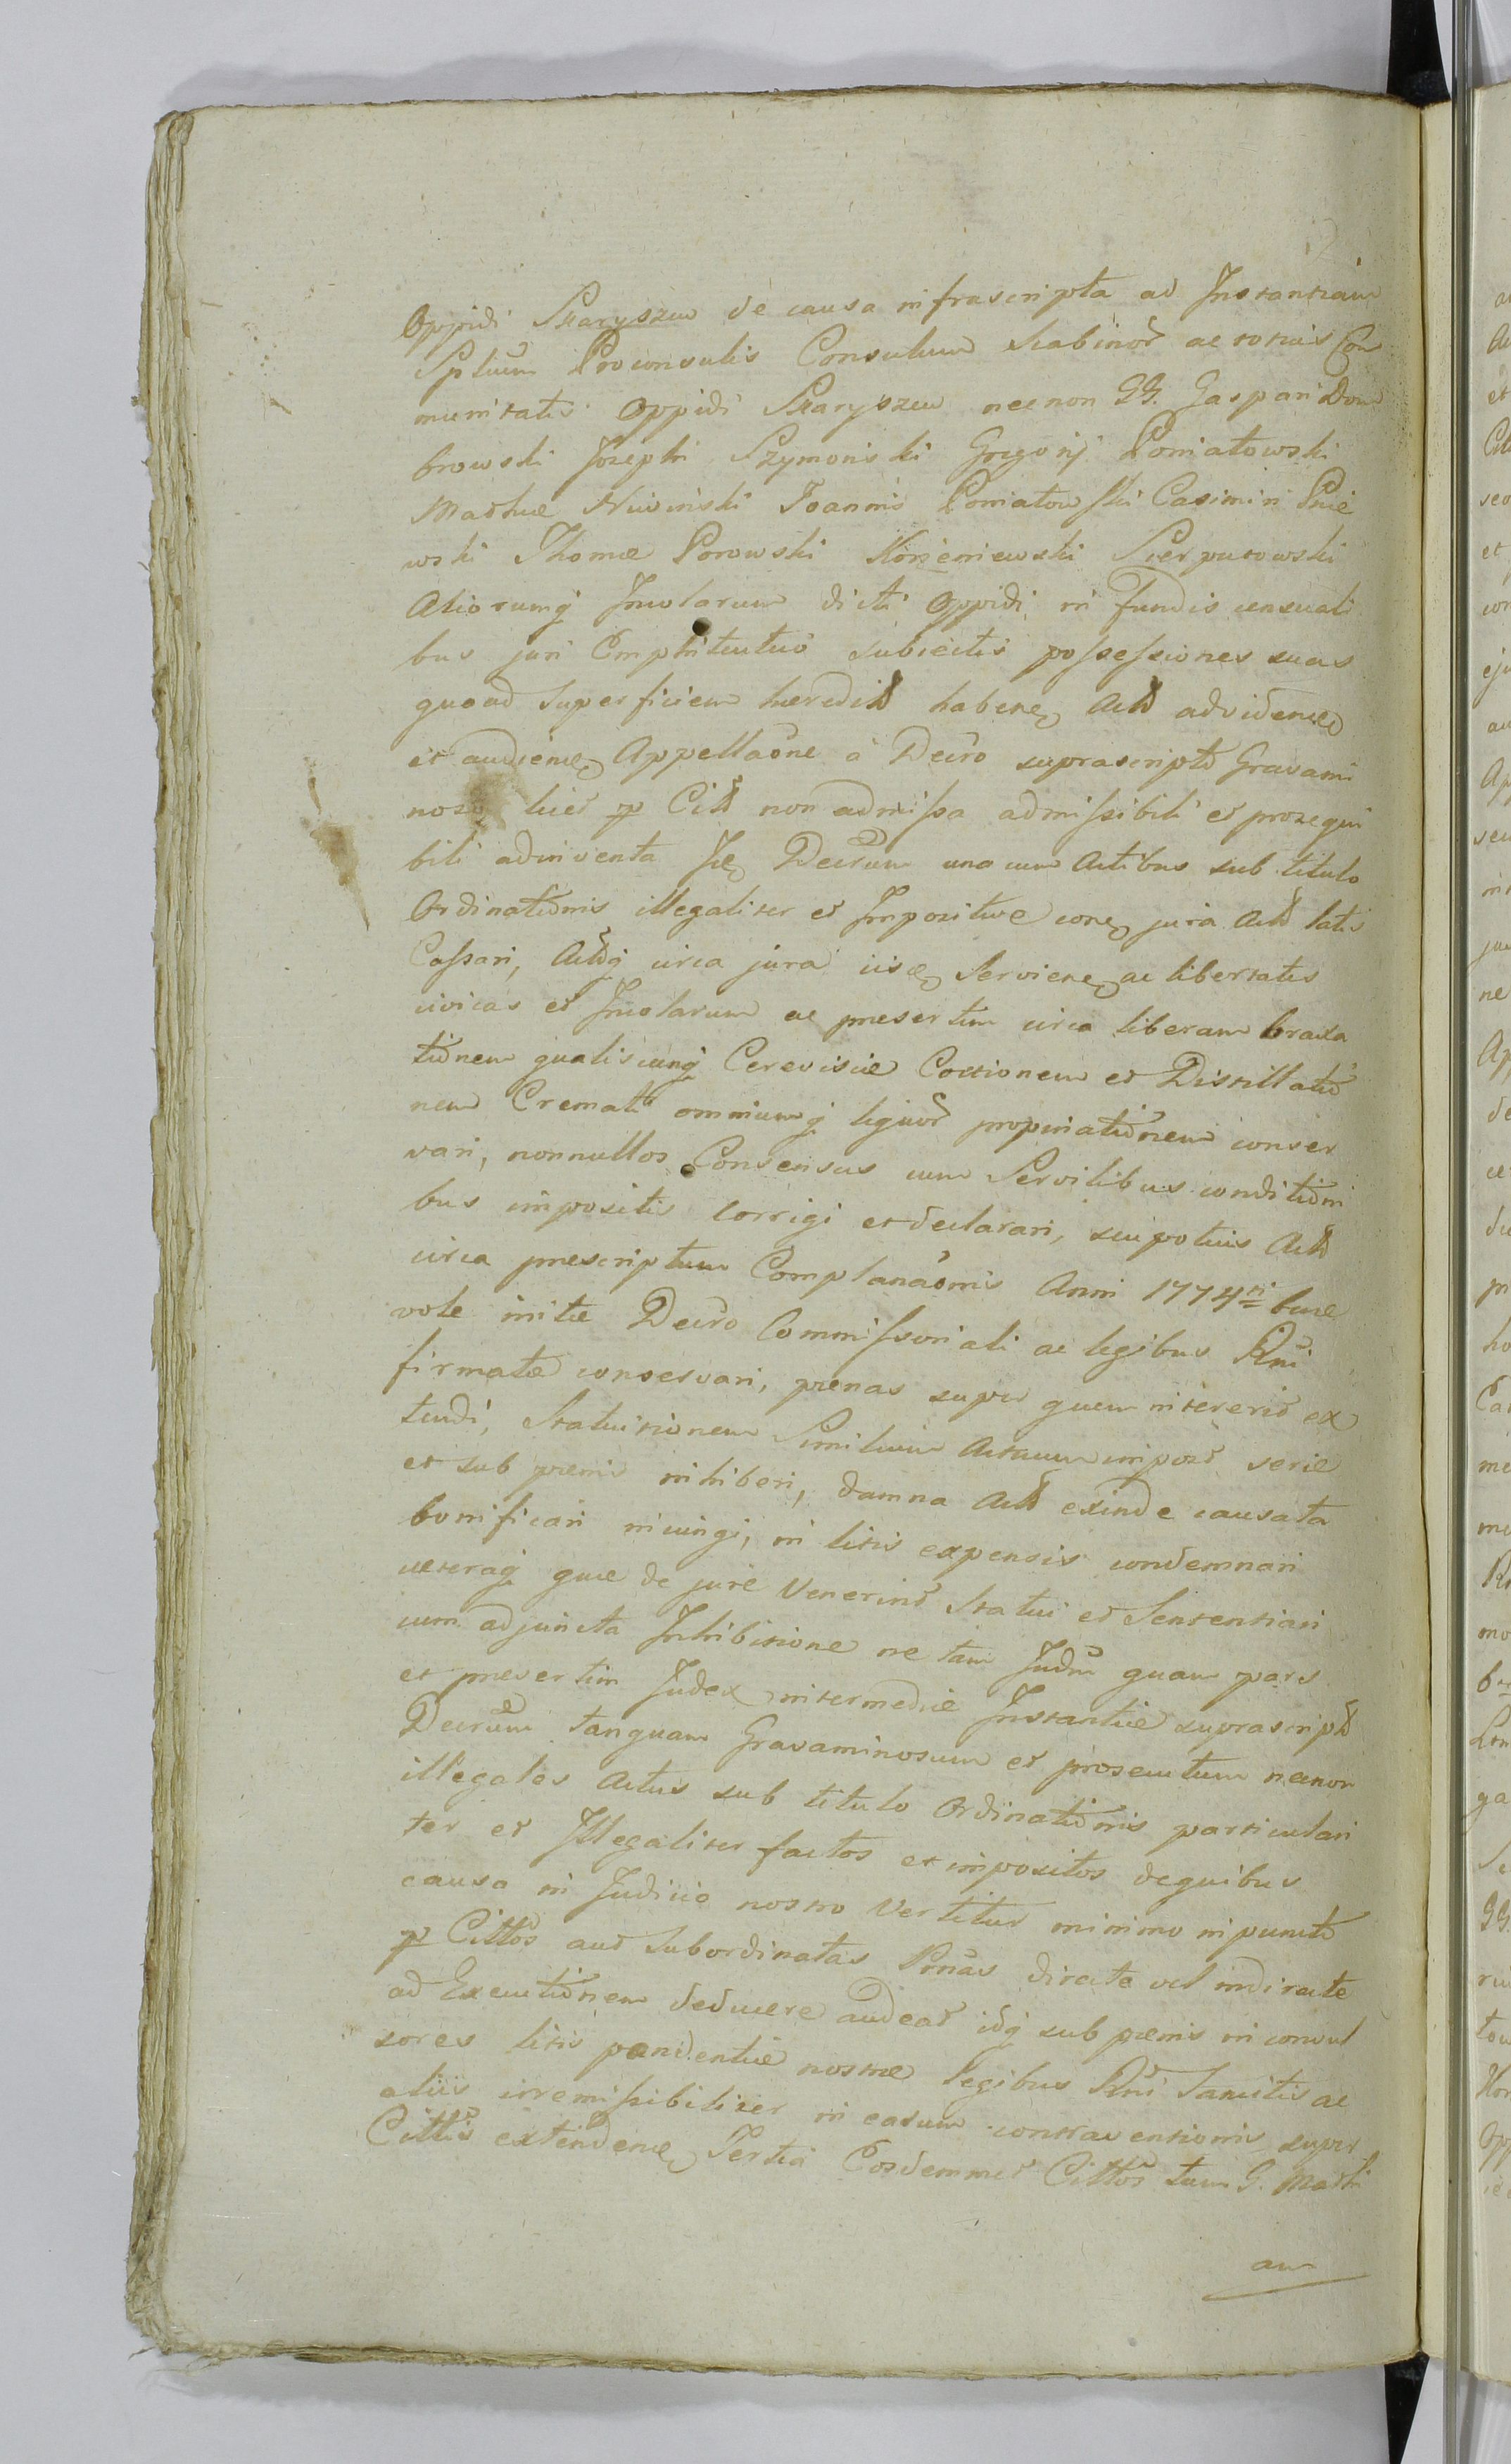 Oppidi Skaryszew de causa infrascripta ad Instantiam
Sptium Proconsulis Consulum Scabinor ac totius Com
munitatis Oppidi Skaryszew necnon GG. Gaspari Dom
browski Josephi Szymonski Gregorij Poniatowski
Mathiæ Niwinski Joannis Poniatowski Casimiri Pnie
wski Thomæ Porowski Korzeniewski Sierputowski
Aliorumq Incolarum dicti Oppidi in fundis censuali
bus juri Emphiteutico subiectis possessiones suas
quoad Superficiem hæredit habene Act ad vidend
et audiend Appellaone à Decro suprascripto Gravami
noso licet p Citt non admissa admissibili et prosequi
bili adinventa Decrum una cum Actibus sub titulo
Ordinationis illegaliter et Impositive jura Act latis
Cassari, Actq circa jura serviene ac libertates
civicas et Incolarum ac presertim circa liberam braxa
tionem qualiscunq Cerevisiæ Coctionem et Distillatio
nem Cremati omniumq liquor propinationem conser
vari, nonnullos Consensus cum Servilibus conditioni
bus impositis corrigi et declarari, seu potius Act
circa præscriptum Complanaonis Anni 1774ti bene
vole initæ Decro Commissoriali ac legibus Rni
firmatæ conservari, pænas super quem intererit ex
tendi, Statuitionem Similium Actuum impos serie
et sub pænis inhiberi, damna Act exinde causata
bonificari injungi, in litis expensis condemnari
cæteraq quæ de jure Venerint Statui et Sententiari
cum adjuncta Inhibitione ne tam Judm quam pars
et presertim Judex intermediæ Instantiæ suprascript
Decrum tanquam Gravaminosum et prosecutum necnon
illegales Actus sub titulo Ordinationis particulari
ter et Illegaliter factos et impositos de quibus
causa in Judicio nostro Vertitur minimo in puncto
p Cittos aut Subordinatas Prnas directe vel indirecte
ad Executionem deducere audeat idq sub pænis in convul
sores litis pendentiæ nostræ legibus Rni Sancitis ac
aliis irremissibiliter in casum contraventionis super
Cittis extendene Tertia Eosdemmet Cittos tum G. Marti